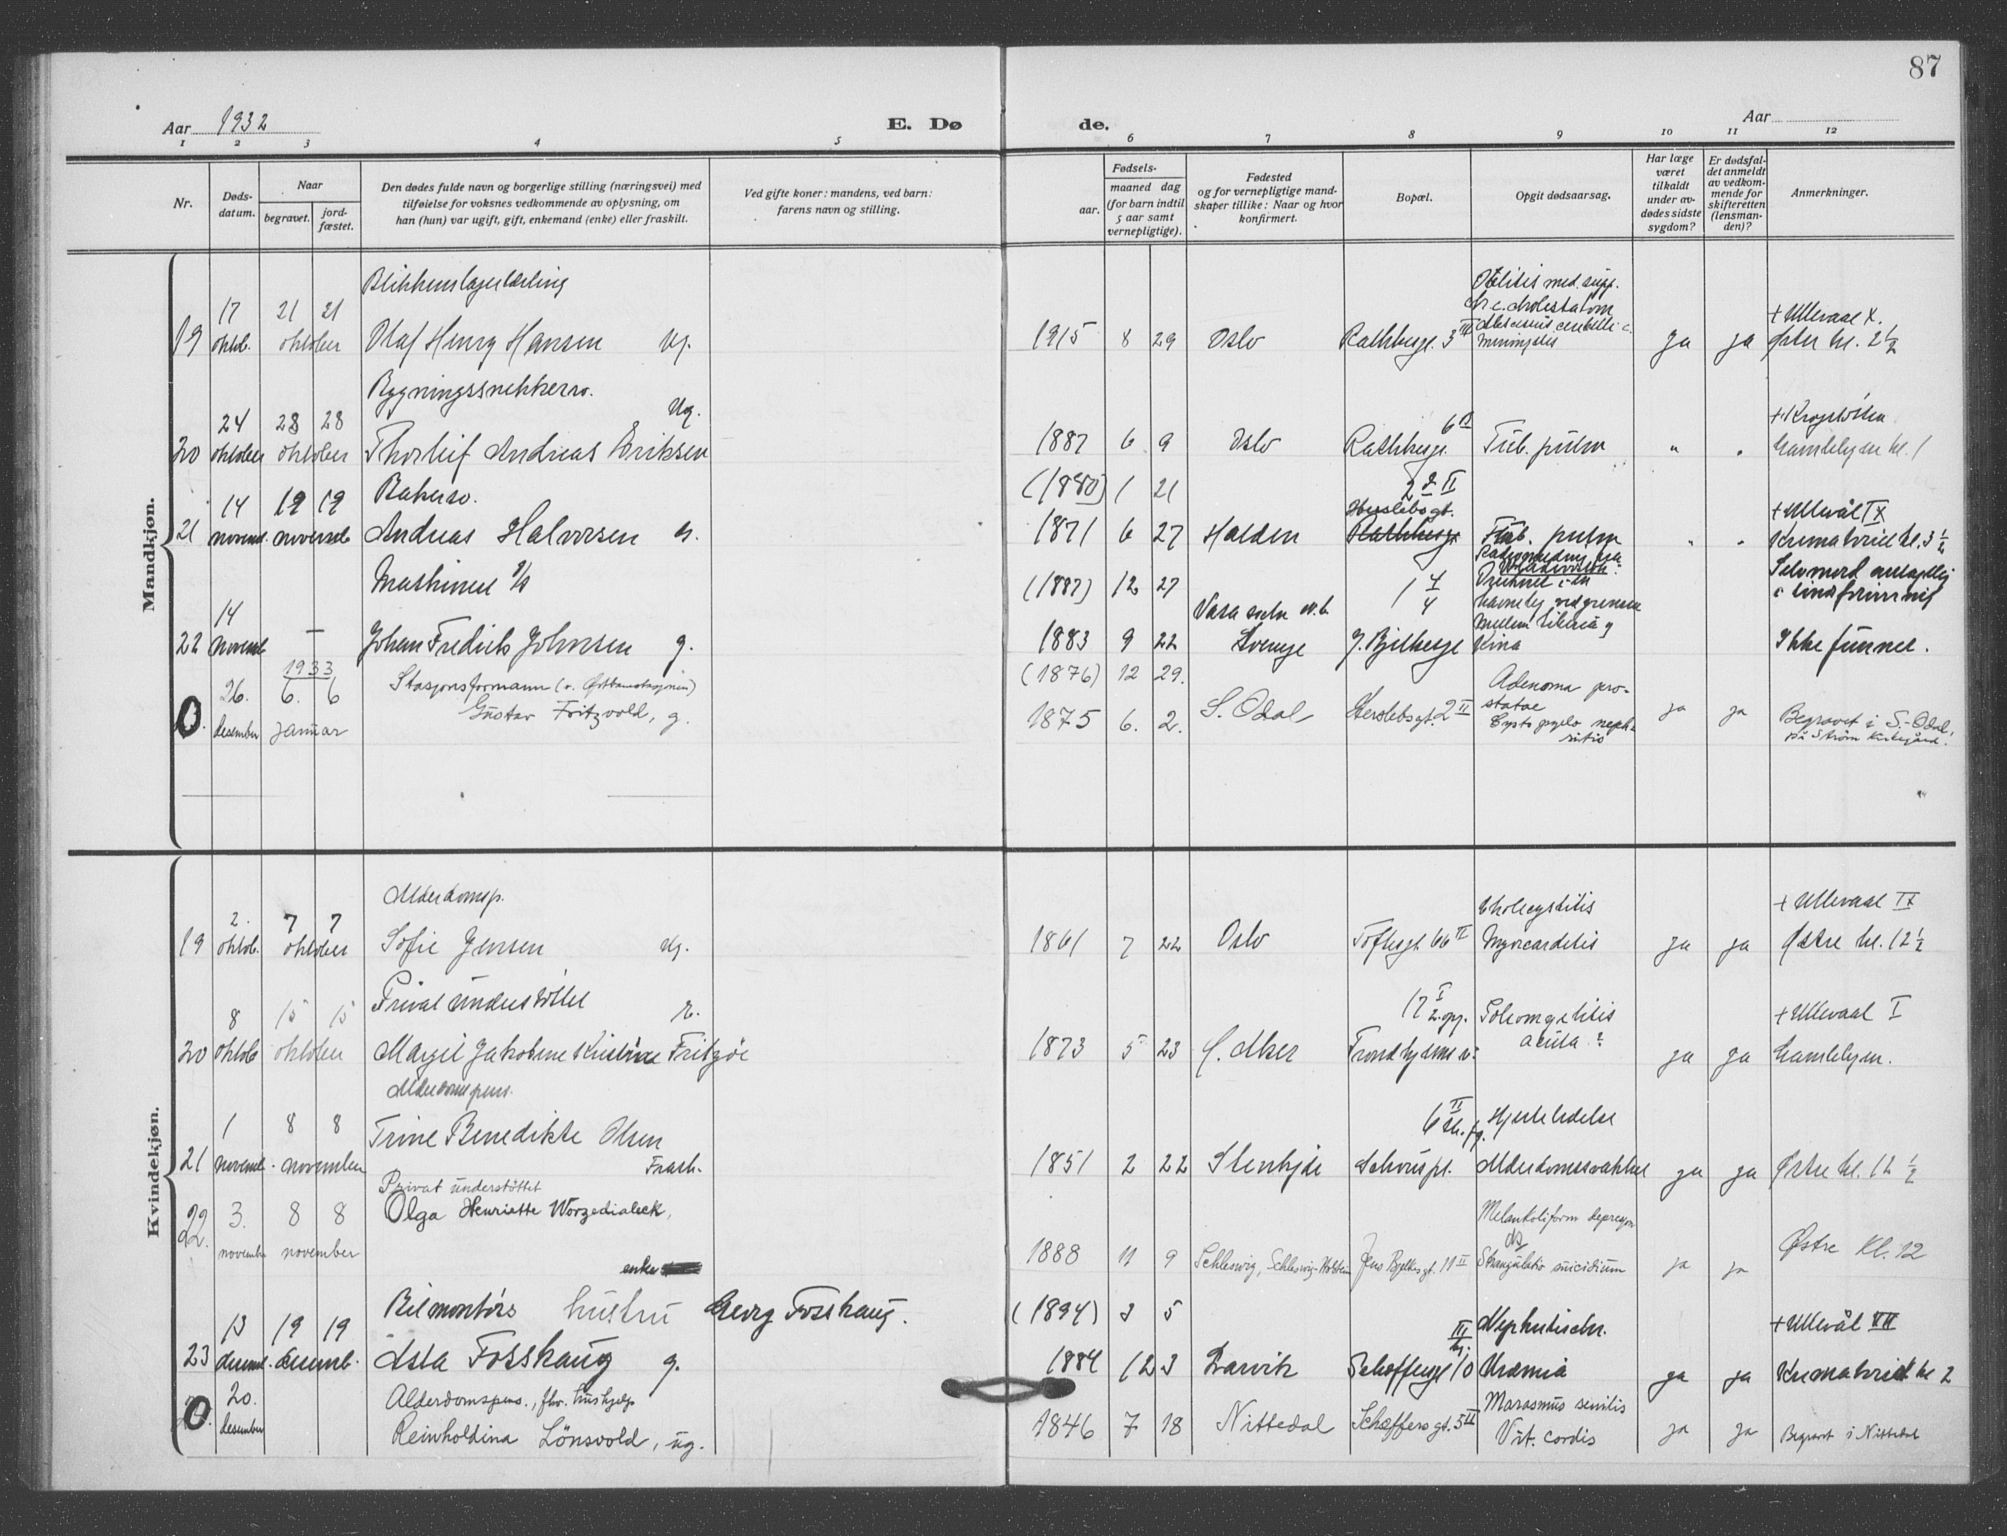 87
Aar 1932
E. Dø de.
Aar
1 2 3 4 5 6 7 8 9 10 11 12
Nr.
Døds-
datum.
Naar
begravet.
jord-
fæstet.
Den dødes fulde navn og borgerlige stilling (næringsvei) med
tilføielse for voksnes vedkommende av oplysning, om
han (hun) var ugift, gift, enkemand (enke) eller fraskilt.
Ved gifte koner: mandens, ved barn:
farens navn og stilling.
Fødsels-
aar.
maaned dag
(for barn indtil
5 aar samt
vernepligtige).
Fødested
og for vernepligtige mand-
skaper tillike: Naar og hvor
konfirmert.
Bopæl.
Opgit dødsaarsag.
Har læge
været
tilkaldt
under av-
dødes sidste
sygdom?
Er dødsfal-
det anmeldt
av vedkom-
mende for
skifteretten
(lensman-
den)?
Anmerkninger.
Mandkjøn.
Blikkenslagerlærling
19 17 oktob. 21 21 oktober Olaf Henry Hansen Ug. 1915 8 29 Oslo Rathkesgt. 3 III
Otitis med supp.
chr. c. cholestatom
meningitis
ja ja + Ullevaal X.
Østre kl. 2 1/2
Bygningssnekkersv.
20 24 oktober 28 28 oktober Thorleif Andreas Eriksen Ug. 1887 6 9 Oslo Rathkesgt. 6 II Tub. pulm " "
Gamlebyen kl. 1
Bakersv.
(1880) 1 21
21 14 novemb. 19 19 novemb. Andreas Halvorsen g. 1871 6 27 Halden Herslebsgt. 2 II Rathkesgt. Tub. pulm " " + Ullevål IX
Krematoriet kl. 3 1/2
Maskinist
(1887) 12 27
22 14 novemb. — Johan Fredrik Johnsen g. 1883 9 22 Sverige J. Bjelkesgt Kina
Selvmord antagelig
i sindsforvirring
Ikke funnet.
1933
Stasjonsformann (v. Østbanestasjonen)
(1876) 12 29.
0 26. desember 6. 6 januar Gustav Fritzvold, g. 1875 6. 2. S. Odal Herslebsgt. 2 II
Adenoma pro-
statae
Cysto pyelo neph-
ritis
ja ja Begravet i S.-Odal,
på Strøm kirkegård.
Kvindekjøn.
Alderdomsp.
19 2. oktob. 7 7 oktober Sofie Jensen Ug. 1861 7 22 Oslo Toftesgt. 66 II
Cholecystitis
Myocarditis
ja ja + Ullevaal IX
Østre kl. 12 1/2
Privat understøttet
20 8 oktob 15 15 oktober Margit Jakobine Kristine Fritzøe 1873 5 23 Ø. Aker Trondhjems v. 17 I 2. opg.
acuta ?
ja ja + Ullevaal I
Gamlebyen.
Alderdoms pens.
21 1 novemb. 8 8 november Trine Benedikte Olsen Frask. 1851 2 22 Stenkjær Schousplt. 6 II
Hjertelidelse
Alderdomssvakhet
ja ja Østre kl. 12 1/2
Privat understøttet
22 22. 3. november 8 8 november Olga Henriette Worzedialeck, enke
1888 11 9 Schleswig, Schleswig-Holstein Jens Bjelkesgt. 11 II
Melankoliform depresjon
Strangulatio suicidium
ja ja Østre Kl. 12
Bilmontørs hustru Georg Fosshaug. (1894) 3 5
23 13 desemb. 19 19 desemb. Åsta Fosshaug g. 1884 12 3 Larvik Schæffersgt 10 III
Nephritis chr.
Uræmia
ja ja + Ullevål VII
Krematoriet kl 2
Alderdomspens., fhv. hushjelp
0 20. desember Reinholdina Lönsvold, ug. 1846 7 18 Nittedal Schæffers gt. 5 II
Marasmus senilis
Vit. cordis
ja ja Begravet i Nittedal